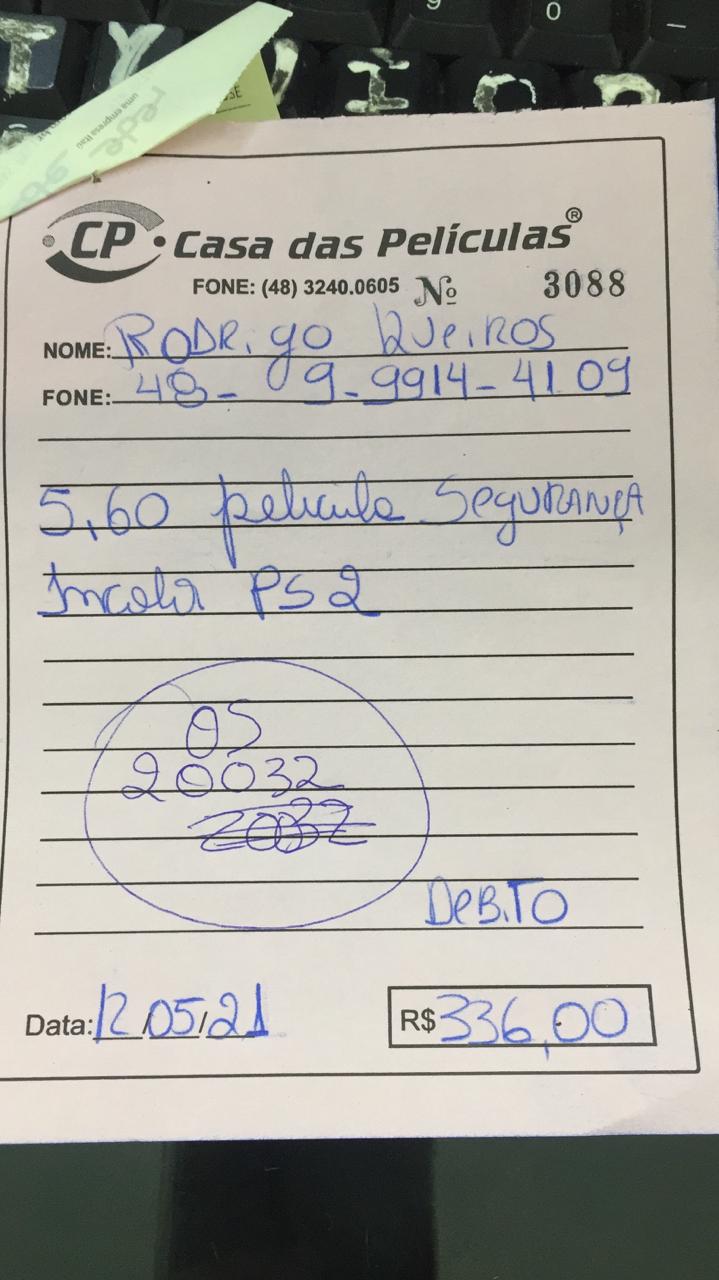 CP Casa das Películas®
FONE: (48) 3240.0605 Nº 3088
NOME: RODRIGO QUEIROS
FONE: 48- 9-9914-4109
5,60 película SEGURANÇA
Incolor PS2
OS
20032
DEBITO
Data: 12/05/21 R$ 336,00
uma empresa Itaú
rede
T Y U I O P
9 0